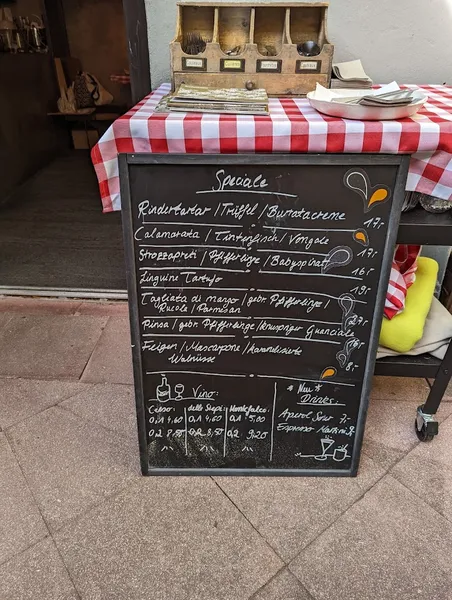 Speciale
Rindertartar / Trüffel / Burratacreme 17,-
Calamarata / Tintenfisch / Vongole 17,-
Strozzapreti / Pfifferlinge / Babyspinat 16,-
Linguine Tartufo 19,-
Tagliata di manzo / gebr. Pfifferlinge /
Rucola / Parmesan 27,-
Pinsa / gebr. Pfifferlinge / Knuspriger Guanciale 16,-
Feigen / Mascarpone / karamelisierte
Walnüsse 8,-
Vino:
Ceiso delle Siepi Montefalco
0,1 4,60 0,1 4,60 0,1 5,00
0,2 8,50 0,2 8,50 0,2 9,20
* Neu *
Drinks:
Aperol Sour 7,-
Espresso Martini 9,-